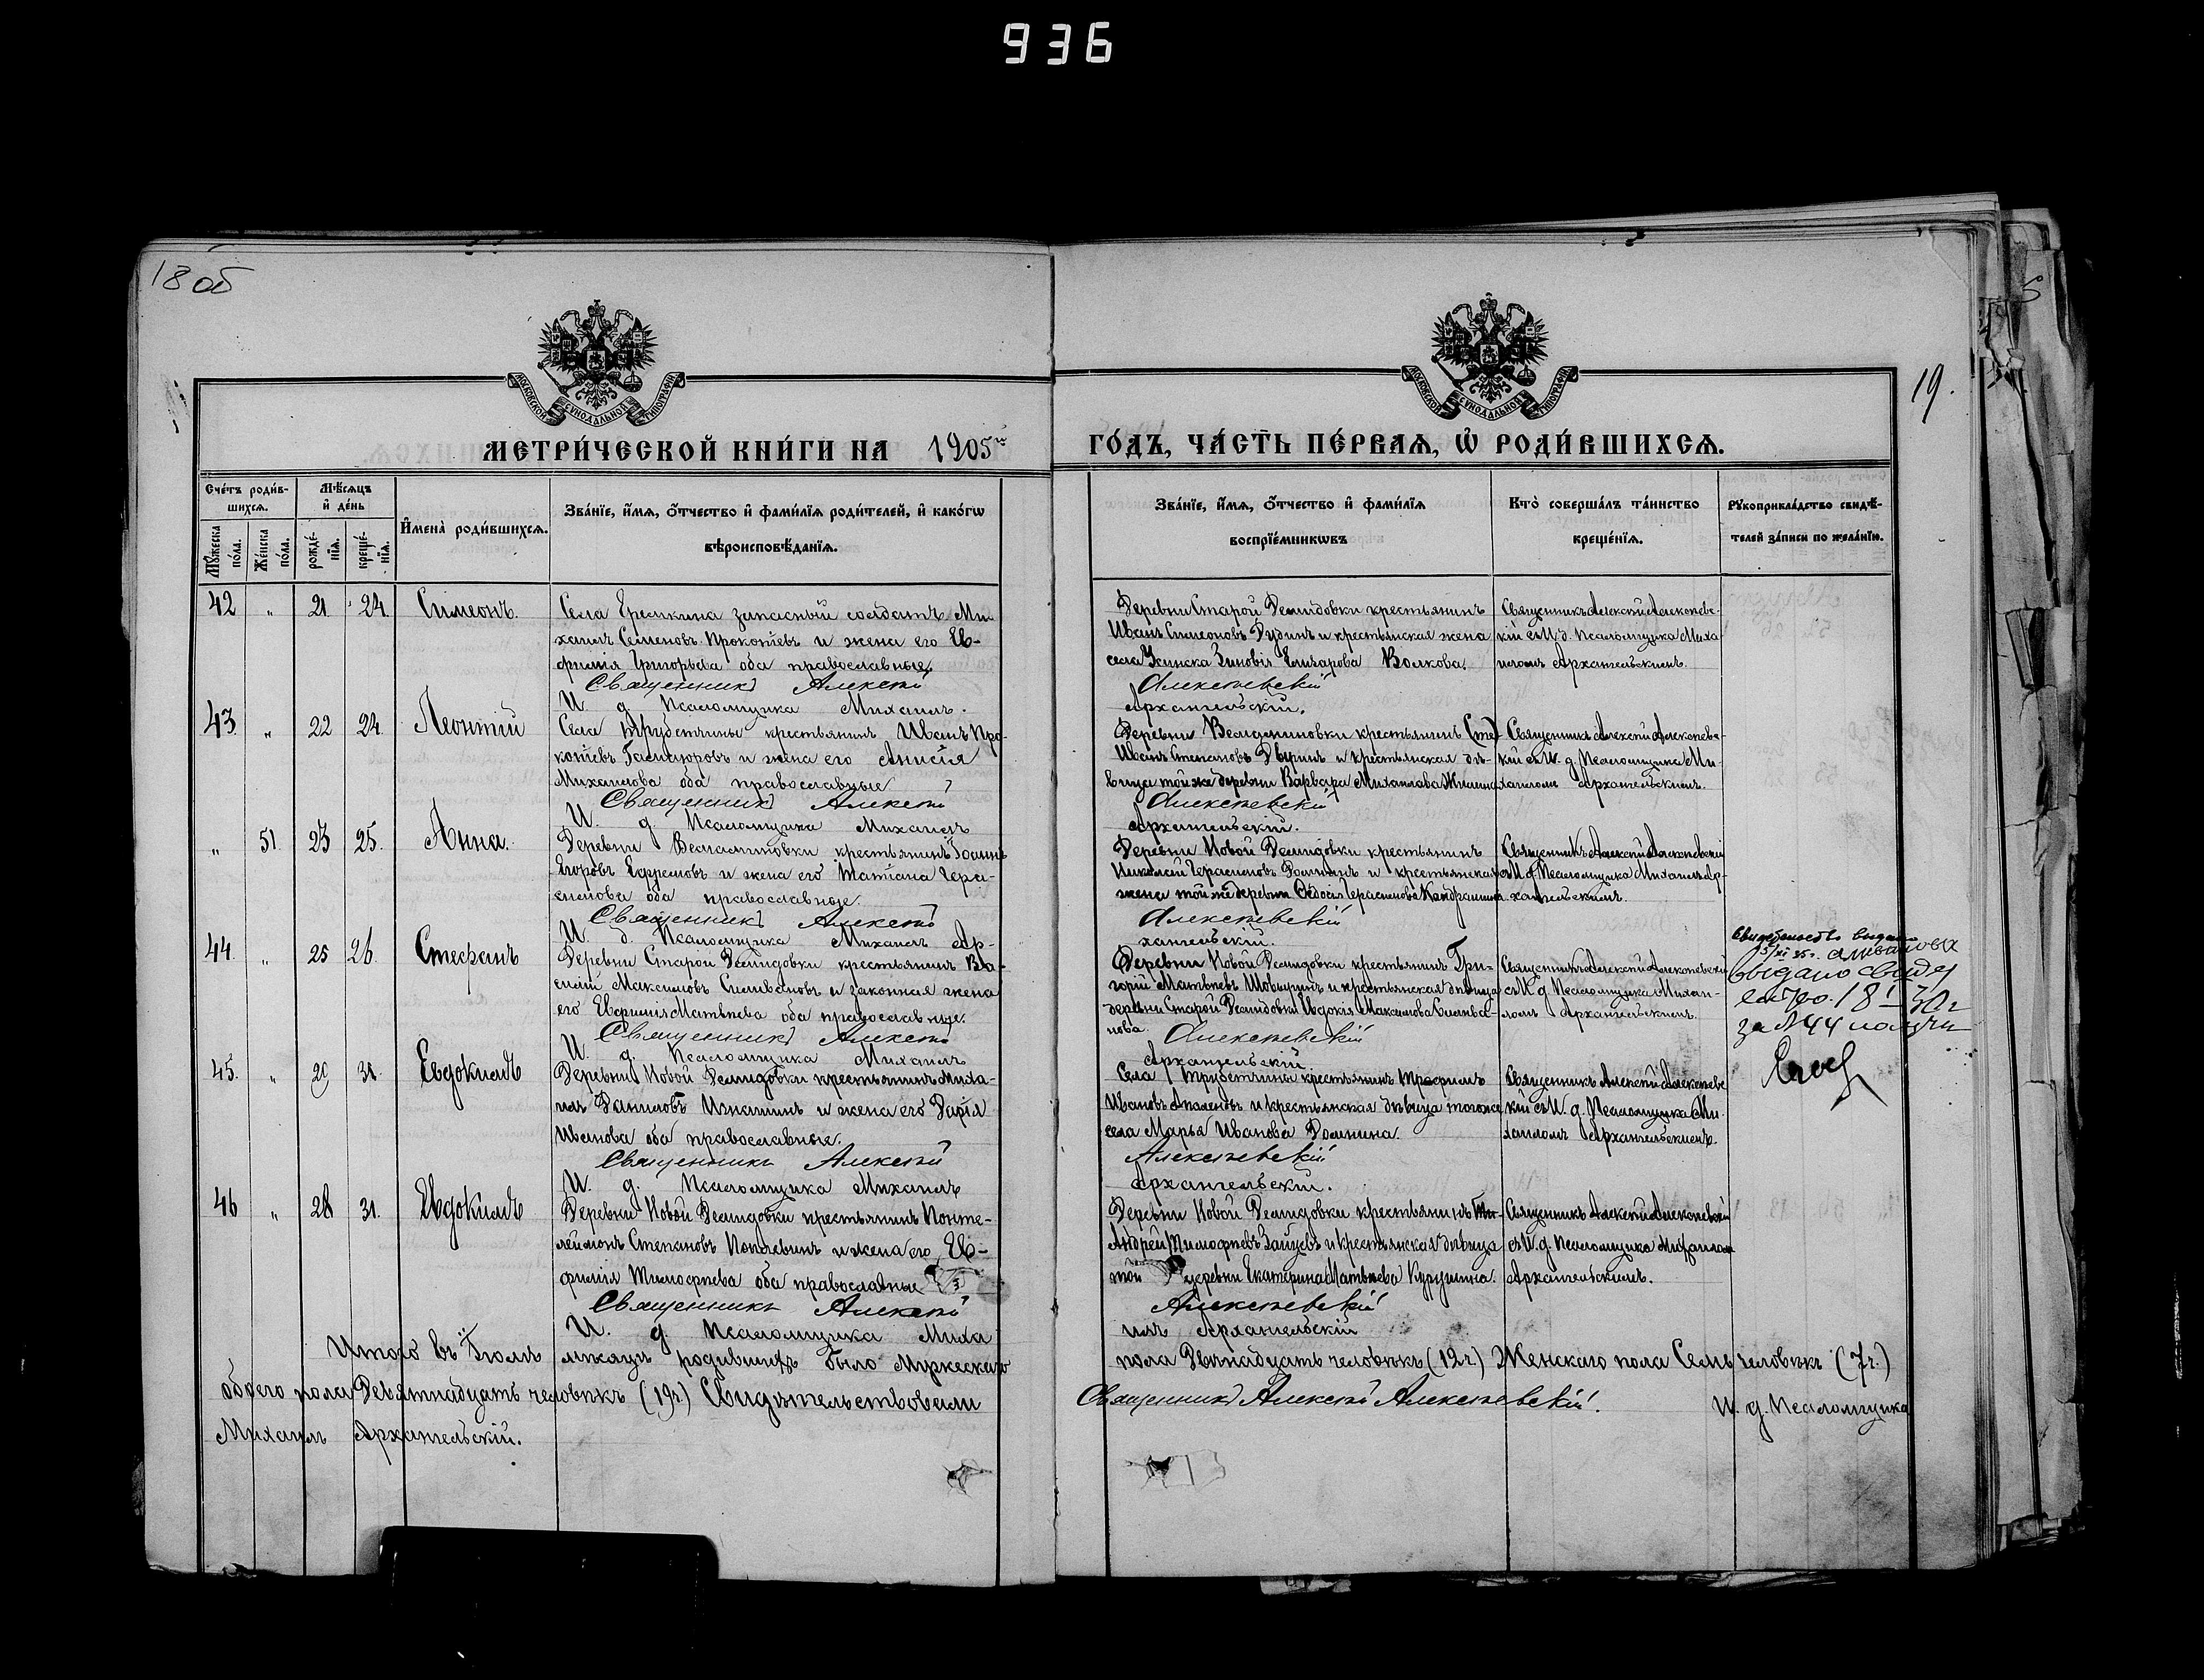 936
18 об
19.
МЕТРИ́ЧЕСКОЙ КНИ́ГИ НА 1905
ГО́ДЪ, ЧА́СТЬ ПЕ́РВАѦ, Ѡ РОДИ́ВШИХСѦ.
МОСКОВСКОЙ СѴНОДАЛЬНОЙ ТИПОГРАФІИ
МОСКОВСКОЙ СѴНОДАЛЬНОЙ ТИПОГРАФІИ
Сче́тъ роди́вшихсѧ.
Мꙋ́жеска по́ла.
Же́нска по́ла.
Мѣ́сѧцъ и҆ де́нь
рожде́нїѧ.
креще́нїѧ.
И҆мена̀ роди́вшихсѧ.
Зва́нїе, и҆́мѧ, ѻ҆́тчество и҆ фами́лїѧ роди́телей, и҆ како́гѡ
вѣроисповѣ́данїѧ.
Зва́нїе, и҆́мѧ, ѻ҆́тчество и҆ фами́лїѧ
воспрїе́мникѡвъ
Кто̀ соверша́лъ та́инство
креще́нїѧ.
Рꙋкоприкла́дство свидѣ́телей за́писи по жела́нїю.
42 " 21 24 Симеонъ.
Села Ереликина запасный солдатъ Ми-
хаилъ Семеновъ Прокопьевъ и жена его Ев-
фимія Григорьева оба православные.
Священникъ Алексѣй
И. д. Псаломщика Михаилъ.
Деревни Старой Демидовки крестьянинъ
Иванъ Симеоновъ Дудинъ и крестьянская жена
села Зиновія Елизарова Волкова.
Алексѣевскій
Архангельскій.
Священникъ Алексѣй Алексѣевс-
кій съ И. д. Псаломщика Миха-
иломъ Архангельскимъ.
43 " 22 24 Леонтій
Села Трубетчины крестьянинъ Иванъ Про-
копьевъ и жена его Анисія
Михайлова оба православные
Священникъ Алексѣй
И. д. Псаломщика Михаилъ
Деревни крестьянинъ
Иванъ Степановъ и крестьянская дѣ-
вица той же деревни Варвара Михайлова
Алексѣевскій
Архангельскій.
Священникъ Алексѣй Алексѣевс-
кій съ И. д. Псаломщика Ми-
хаиломъ Архангельскимъ.
" 51. 23 25. Анна.
Деревни крестьянинъ Іоаннъ
Егоровъ Ефремовъ и жена его Татіана Гера-
симова оба православные.
Священникъ Алексѣй
И. д. Псаломщика Михаилъ Ар-
Деревни Новой Демидовки крестьянинъ
Николай Герасимовъ и крестьянская
жена той же деревни Герасимова
Алексѣевскій
хангельскій.
Священникъ Алексѣй Алексѣевскій
съ И. д. Псаломщика Михаиломъ Ар-
хангельскимъ.
44. " 25 26. Стефанъ
Деревни Старой Демидовки крестьянинъ Ва-
силій Максимовъ Силивановъ и законная жена
его Евфимія Матвѣева оба православные.
Священникъ Алексѣй
И. д. Псаломщика Михаилъ
Деревни Новой Демидовки крестьянинъ Гри-
горій Матвѣевъ и крестьянская дѣвица
деревни Старой Демидовки Евдокія Максимова Силива-
нова.
Алексѣевскій
Архангельскій.
Священникъ Алексѣй Алексѣевскій
съ И. д. Псаломщика Михаи-
ломъ Архангельскимъ.
Свидетельство выдано
выдано свидет
за №44 получи
45. " 29 31. Евдокимъ
Деревни Новой Демидовки крестьянинъ Миха-
илъ Даниловъ и жена его Дарія
Иванова оба православные.
Священникъ Алексѣй
И. д. Псаломщика Михаилъ
Села Трубетчины крестьянинъ Трофимъ
Ивановъ и крестьянская дѣвица тогоже
села Марья Иванова Домнина.
Алексѣевскій
Архангельскій.
Священникъ Алексѣй Алексѣевс
кій съ И. д. Псаломщика Ми-
хаиломъ Архангельскимъ.
46 " 28 31. Евдокимъ
Деревни Новой Демидовки крестьянинъ Понте-
леймонъ Степановъ и жена его Ев-
фимія Тимофеева оба православные
Священникъ Алексѣй
И. д. Псаломщика Миха
Деревни Новой Демидовки крестьянинъ
Андрей Тимофеевъ Зайцевъ и крестьянская дѣвица
той деревни Екатерина Матвѣева
Алексѣевскій
илъ Архангельскій
Священникъ Алексѣй Алексѣевскій
съ И. д. Псаломщика Михаиломъ
Архангельскимъ.
Итого въ Іюлѣ мѣсяцѣ родившихъ было Мужескаго
пола Двѣнадцать человѣкъ (12 ч.) Женскаго пола Семь человѣкъ (7 ч.)
обоего пола Девятнадцать человѣкъ (19ч.) Свидѣтельствовали
Священникъ Алексѣй Алексѣевскій. И. д. Псаломщика
Михаилъ Архангельскій.